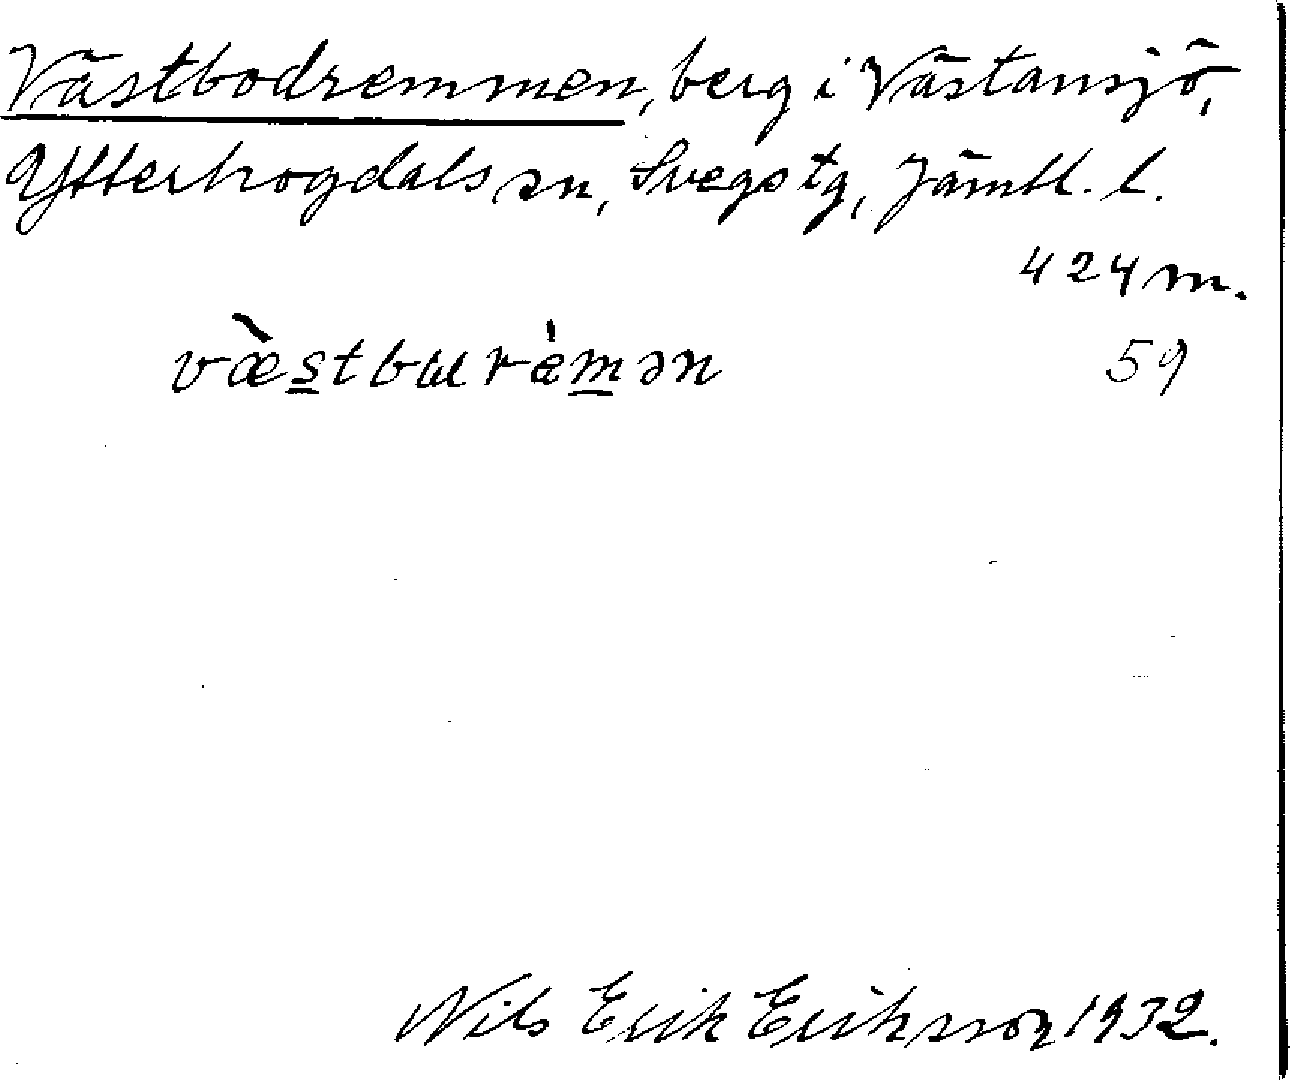 Västbodremmen, berg i Västansjö,
Ytterhogdals sn, Svegs tg, Jämtl. l.
424 m.
væ̀s̲tbɯræ̀m̲ən 59
Nils Erik Eriksson 1932.